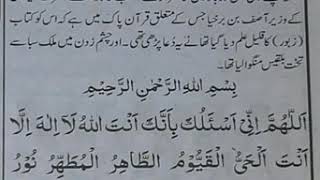 کے وزیر آصف بن برخیا جس کے متعلق قرآن پاک میں ہے کہ اس کو کتاب
(زبور) کا قلیل علم دیا گیا تھا نے یہ دُعا پڑھی تھی۔ اور چشمِ زدن میں ملک سبا سے
تخت بلقیس منگوالیا تھا۔
بِسْمِ اللهِ الرَّحْمٰنِ الرَّحِيْمِ
اَللّٰهُمَّ اِنِّىْ اَسْئَلُكَ بِاَنَّكَ اَنْتَ اللهُ لَا اِلٰهَ اِلَّا
اَنْتَ الْحَىُّ الْقَيُّوْمُ الطَّاهِرُ الْمُطَهِّرُ نُوْرُ